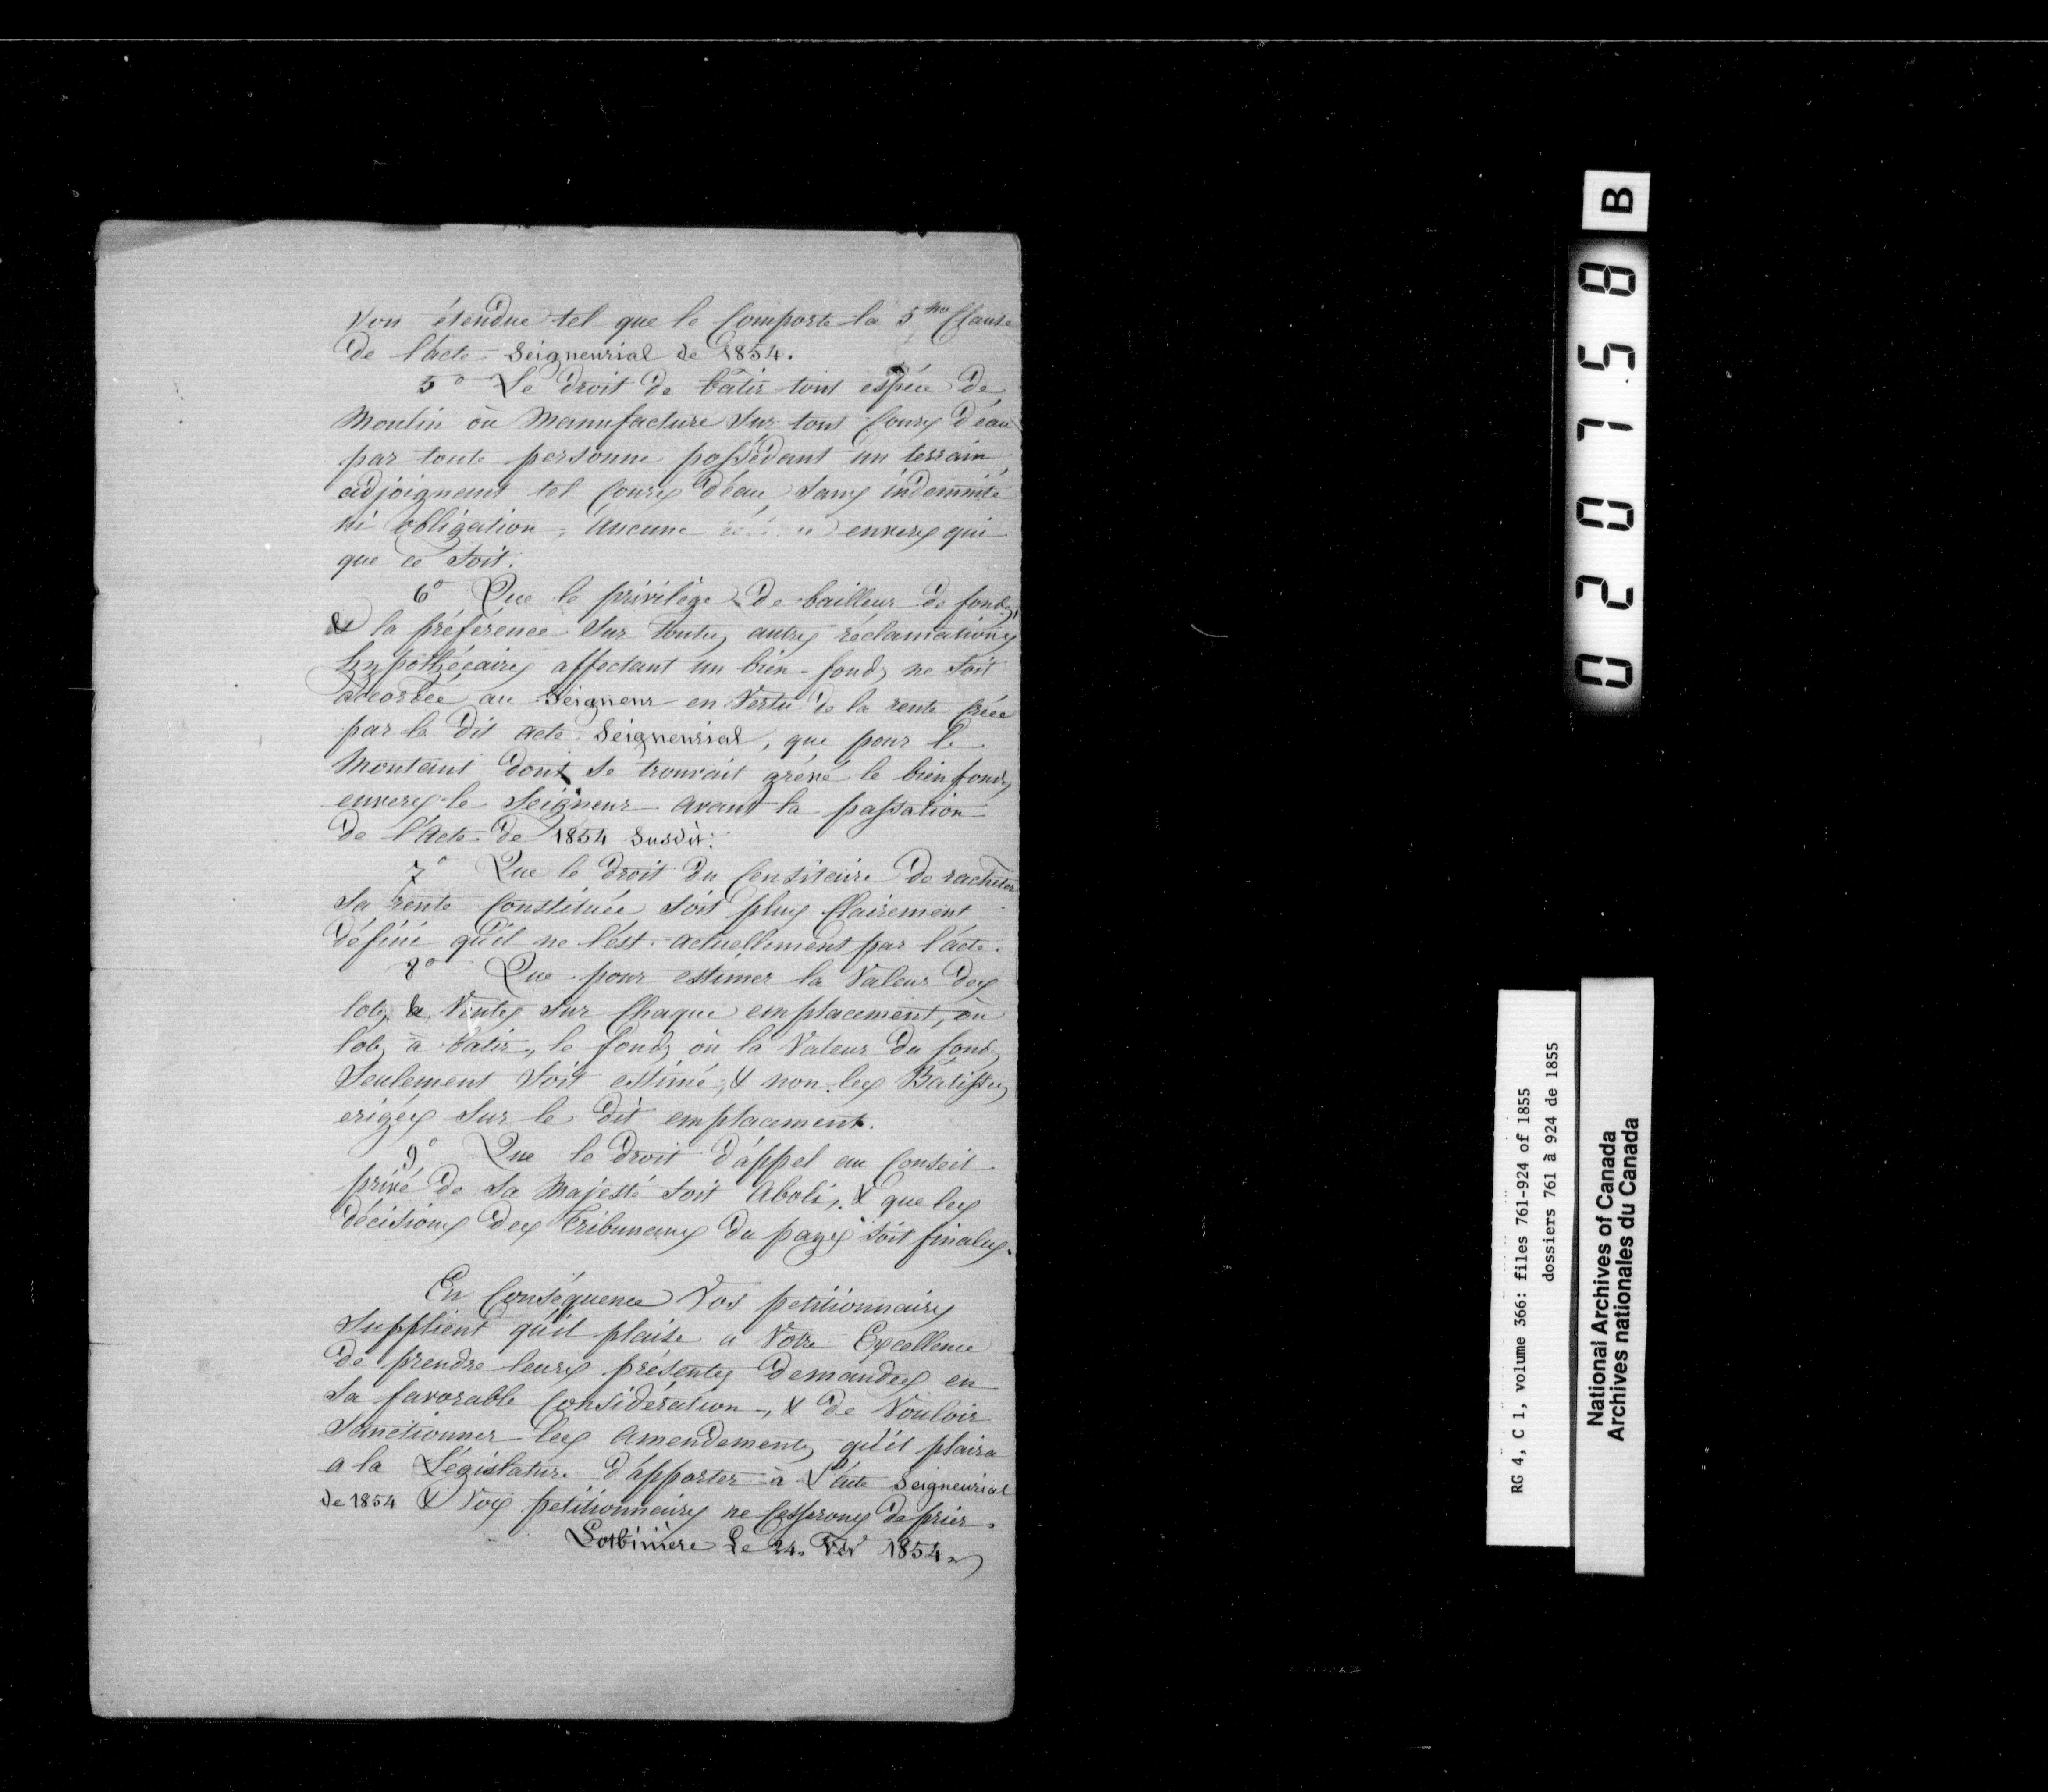 Son étendue tel que le Comporte la 5me Clause
de l'acte Seigneurial de 1854.
5o Le droit de bâtir tout espèce de
Moulin où Manufacture Sur tout Cours d'éau
par toute personne possédant un terrain
adjoignant tel Cours d'éau Sans indemnité
ni obligation, Aucune envers qui
que ce Soit.
6o Que le privilège de bailleur de fonds,
& la préférence Sur toutes autres réclamations
hypothécaires affectant un bien-fonds ne Soit
accordée au Seigneur en Vertu de la rente Créée
par le dit acte Seigneurial, que pour le
Montant dont Se trouvait grévé le bien fonds
envers le Seigneur avant la passation
De l'Acte de 1854 Susdit.
7o Que le droit du Censitaire de racheter
Sa rente Constituée Soit plus Clairement
défini qu'il ne l'ést actuellement par l'acte.
8o Que pour estimer la Valeur des
lots & Ventes Sur Chaque emplacement, où
lots à batir, le fonds où la Valeur du fonds
Seulement Soit estimé, & non les Bâtisses
erigées Sur le dit emplacement.
9o Que le droit d'appel au Conseil
privé de Sa Majesté Soit Aboli, & que les
décisions des Tribunaux du pays soit finales.
En Conséquence Vos petitionnaires
Supplient qu'il plaise a Votre Excellence
de prendre leurs présentes demandes en
Sa favorable Considération, & de Vouloir
Sanctionner les Amendements qu'il plaira
a la Législature d'apporter à L'acte Seigneurial
de 1854 & Vos petitionnaires ne Cesserons de prier.
Lotbinière Le 24. 1854.
B
020758
RG 4, C 1, volume 366: files 761-924 of 1855
dossiers 761 à 924 de 1855
National Archives of Canada
Archives nationales du Canada